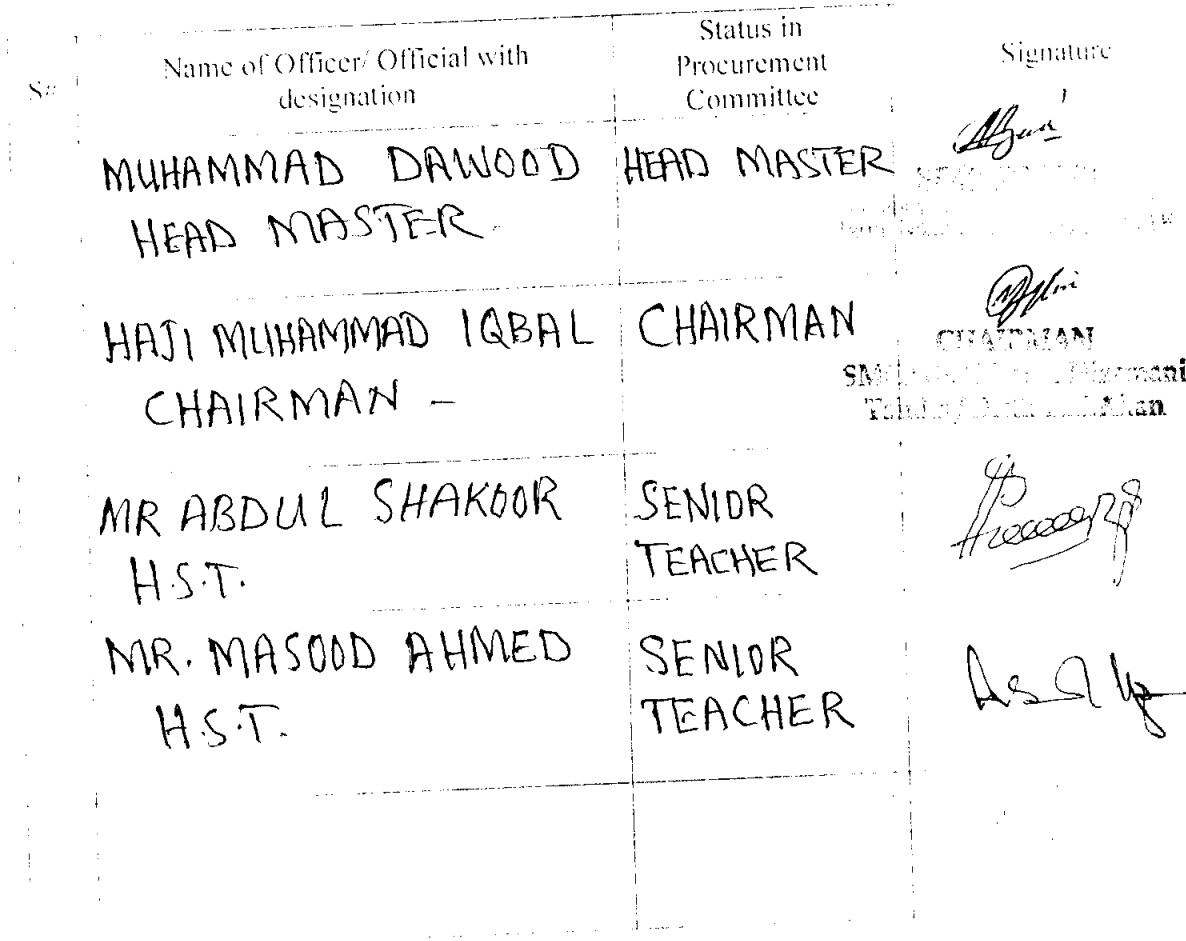 S#
Name of Officer/ Official with
designation
Status in
Procurement
Committee
Signature
MUHAMMAD DAWOOD
HEAD MASTER.
HEAD MASTER
HAJI MUHAMMAD IQBAL
CHAIRMAN –
CHAIRMAN
CHAIRMAN
MR ABDUL SHAKOOR
H.S.T.
SENIOR
TEACHER
MR. MASOOD AHMED
H.S.T.
SENIOR
TEACHER